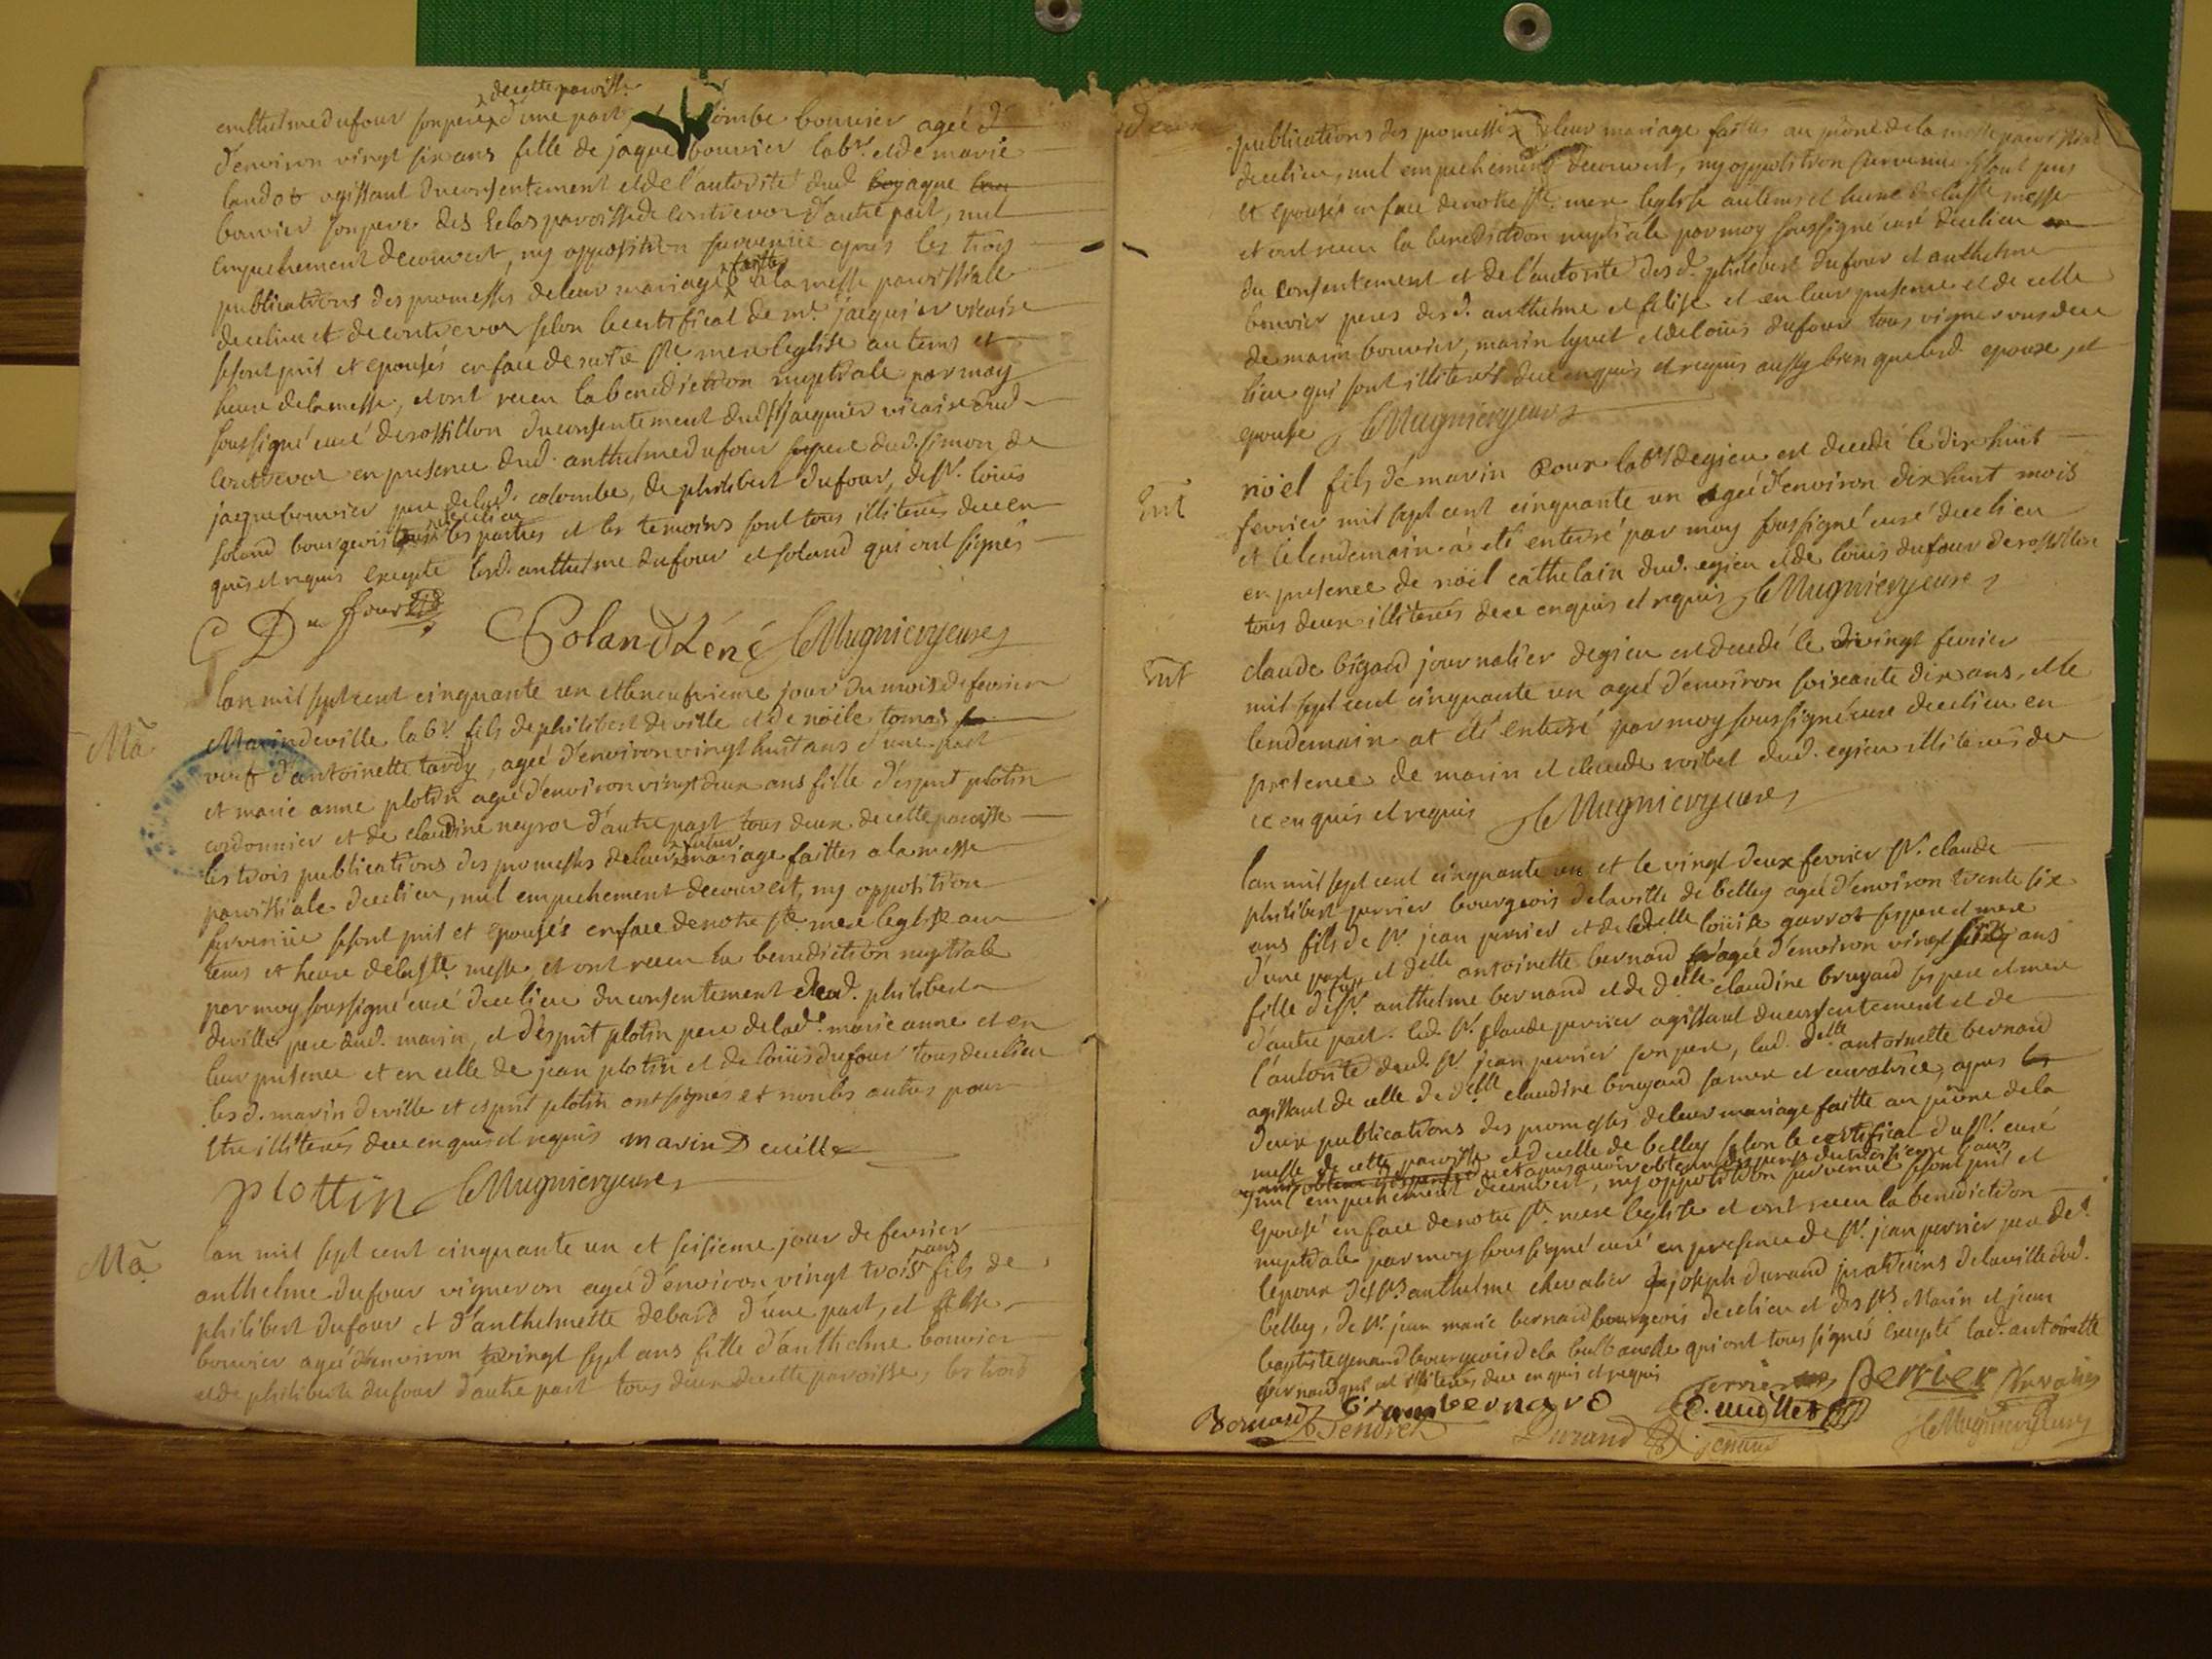 de cette paroisse
anthelme dufour son pere d'une part et colombe bouvier agée d
d'environ vingt six ans fille de jaque bouvier labr. et de marie
landot agissant du consentement et de l'autorité dud. jaque
bouvier son pere des Eclas paroisse de contrevoz d'autre part, nul
empechement decouvert, ny opposition survenüe aprés les trois
publications des promesses de leur mariage faittes a la messe paroissiale
de ce lieu et de contrevoz selon le certificat de mr. jacquier vicaire
se sont pris et epousés en face de notre ste. mere leglise au tems et
heure de la messe, et ont receu la benediction nuptiale par moy
soussigné curé de rossillon du consentement dud. sr jacquier vicaire dud.
contrevoz en presence dud. anthelme dufour pere dud. simon, de
jaque bouvier pere de lad. colombe, de philibert dufour, de sr. loüis
soland bourgeois de ce lieu les parties et les temoins sont tous illiterés de ce en
quis et requis excepté lesd. anthelme dufour et soland qui ont signés
Du four
Soland Léné Le Mugnier curé
Ma
lan mil sept cent cinquante un et le neufvieme jour du mois de fevrier
Marin deville labr. fils de philibert deville et de noële tomas
veuf d'antoinette tardy, agée d'environ vingt huit ans d'une part
et marie anne plotin agée d'environ vingt deux ans fille d'esprit plotin
cordonnier et de claudine neyroz d'autre part tous deux de cette paroisse
les trois publications des promesses de leur futur mariage faittes a la messe
paroissiale de ce lieu, nul empechement decouvert, ny opposition
survenüe se sont pris et epousés en face de notre ste. mere leglise au
tems et heure de la ste. messe, et ont receu la benediction nuptiale
par moy soussigné curé de ce lieu du consentement dud. philibert
deville pere dud. marin, et d'esprit plotin pere de lad. marie anne et en
leur presence et en celle de jean plotin et de loüis dufour tous de ce lieu
lesd. marin deville et esprit plotin ont signés et non les autres pour
etre illiterés de ce enquis et requis marin Deville
plottin Le Mugnier curé
Ma
lan mil sept cent cinquante un et seisieme jour de fevrier
anthelme dufour vigneron agée d'environ vingt trois ans fils de
philibert dufour et d'anthelmette debard d'une part, et felise
bouvier agée d'environ vingt sept ans fille d'anthelme bouvier
et de philiberte dufour d'autre part tous deux de cette paroisse, les trois
publications des promesses de leur mariage faittes au prône de la messe paroissiale
de ce lieu, nul empechement decouvert, ny opposition survenüe se sont pris
et epousés en face de notre ste. mere leglise au tems et heure de la ste messe
et ont receu la benediction nuptiale par moy soussigné curé de ce lieu
du consentement et de l'autorité desd. philibert dufour et anthelme
bouvier peres desd. anthelme et felise et en leur presence et de celle
de marin bouvier, marin lyvet et de loüis dufour tous vignerons de ce
lieu qui sont illiterés de ce enquis et requis aussy bien que led. epoux, et
epouse Le Mugnier curé
Ent
nöel fils de marin Roux labr. degieu est decedé le dix huit
fevrier mil sept cent cinquante un agée d'environ dix huit mois
et le lendemain a eté enterré par moy soussigné curé de ce lieu
en presence de nöel cathelain dud. egieu et de loüis dufour de rossillon
tous deux illiterés de ce enquis et requis Le Mugnier curé
Ent
claude bigard journalier degieu est decedé le vingt fevrier
mil sept cent cinquante un agée d'environ soixante dix ans, et le
lendemain at eté enterré par moy soussigné curé de ce lieu en
presence de marin et claude voitet dud. egieu illiterés de
ce enquis et requis Le Mugnier curé
lan mil sept cent cinquante un et le vingt deux fevrier sr. claude
philibert perrier bourgeois de la ville de belley agée d'environ trente six
ans fils de sr. jean perrier et de delle loüise garrot ses pere et mere
d'une part, et delle antoinette bernard agée d'environ vingt ans
fille de sr. anthelme bernard et de delle claudine brugard ses pere et mere
d'autre part. led. sr. claude perrier agissant du consentement et de
l'autorité dud. sr. jean perrier son pere, lad. delle antoinette bernard
agissant de celle de delle claudine brugard sa mere et curatrice, apres
deux publications des promesses de leur mariage faitte au prône de la
messe de cette paroisse et de celle de belley selon le certificat du sr. curé
et apres avoir obtenu dispense du troisieme bans
nul empechement decouvert, ny opposition survenüe se sont pris et
epousé en face de notre ste. mere leglise et ont receu la benediction
nuptiale par moy soussigné curé en presence de sr. jean perrier pere de
lepoux des srs. anthelme chevalier joseph durand praticiens de la ville dud.
belley, de sr. jean marie bernard bourgeois de ce lieu et des srs. Marin et jean
baptiste genand bourgeois de la qui ont tous signés excepté lad. antoinette
bernard qui est illiterée de ce enquis et requis
perrier Perrier Chevalier
Bernard bernard
Durand genand Le Mugnier curé